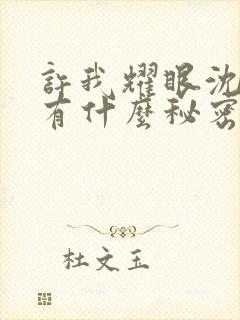 許我耀眼沈
有什麼秘密
杜文玉